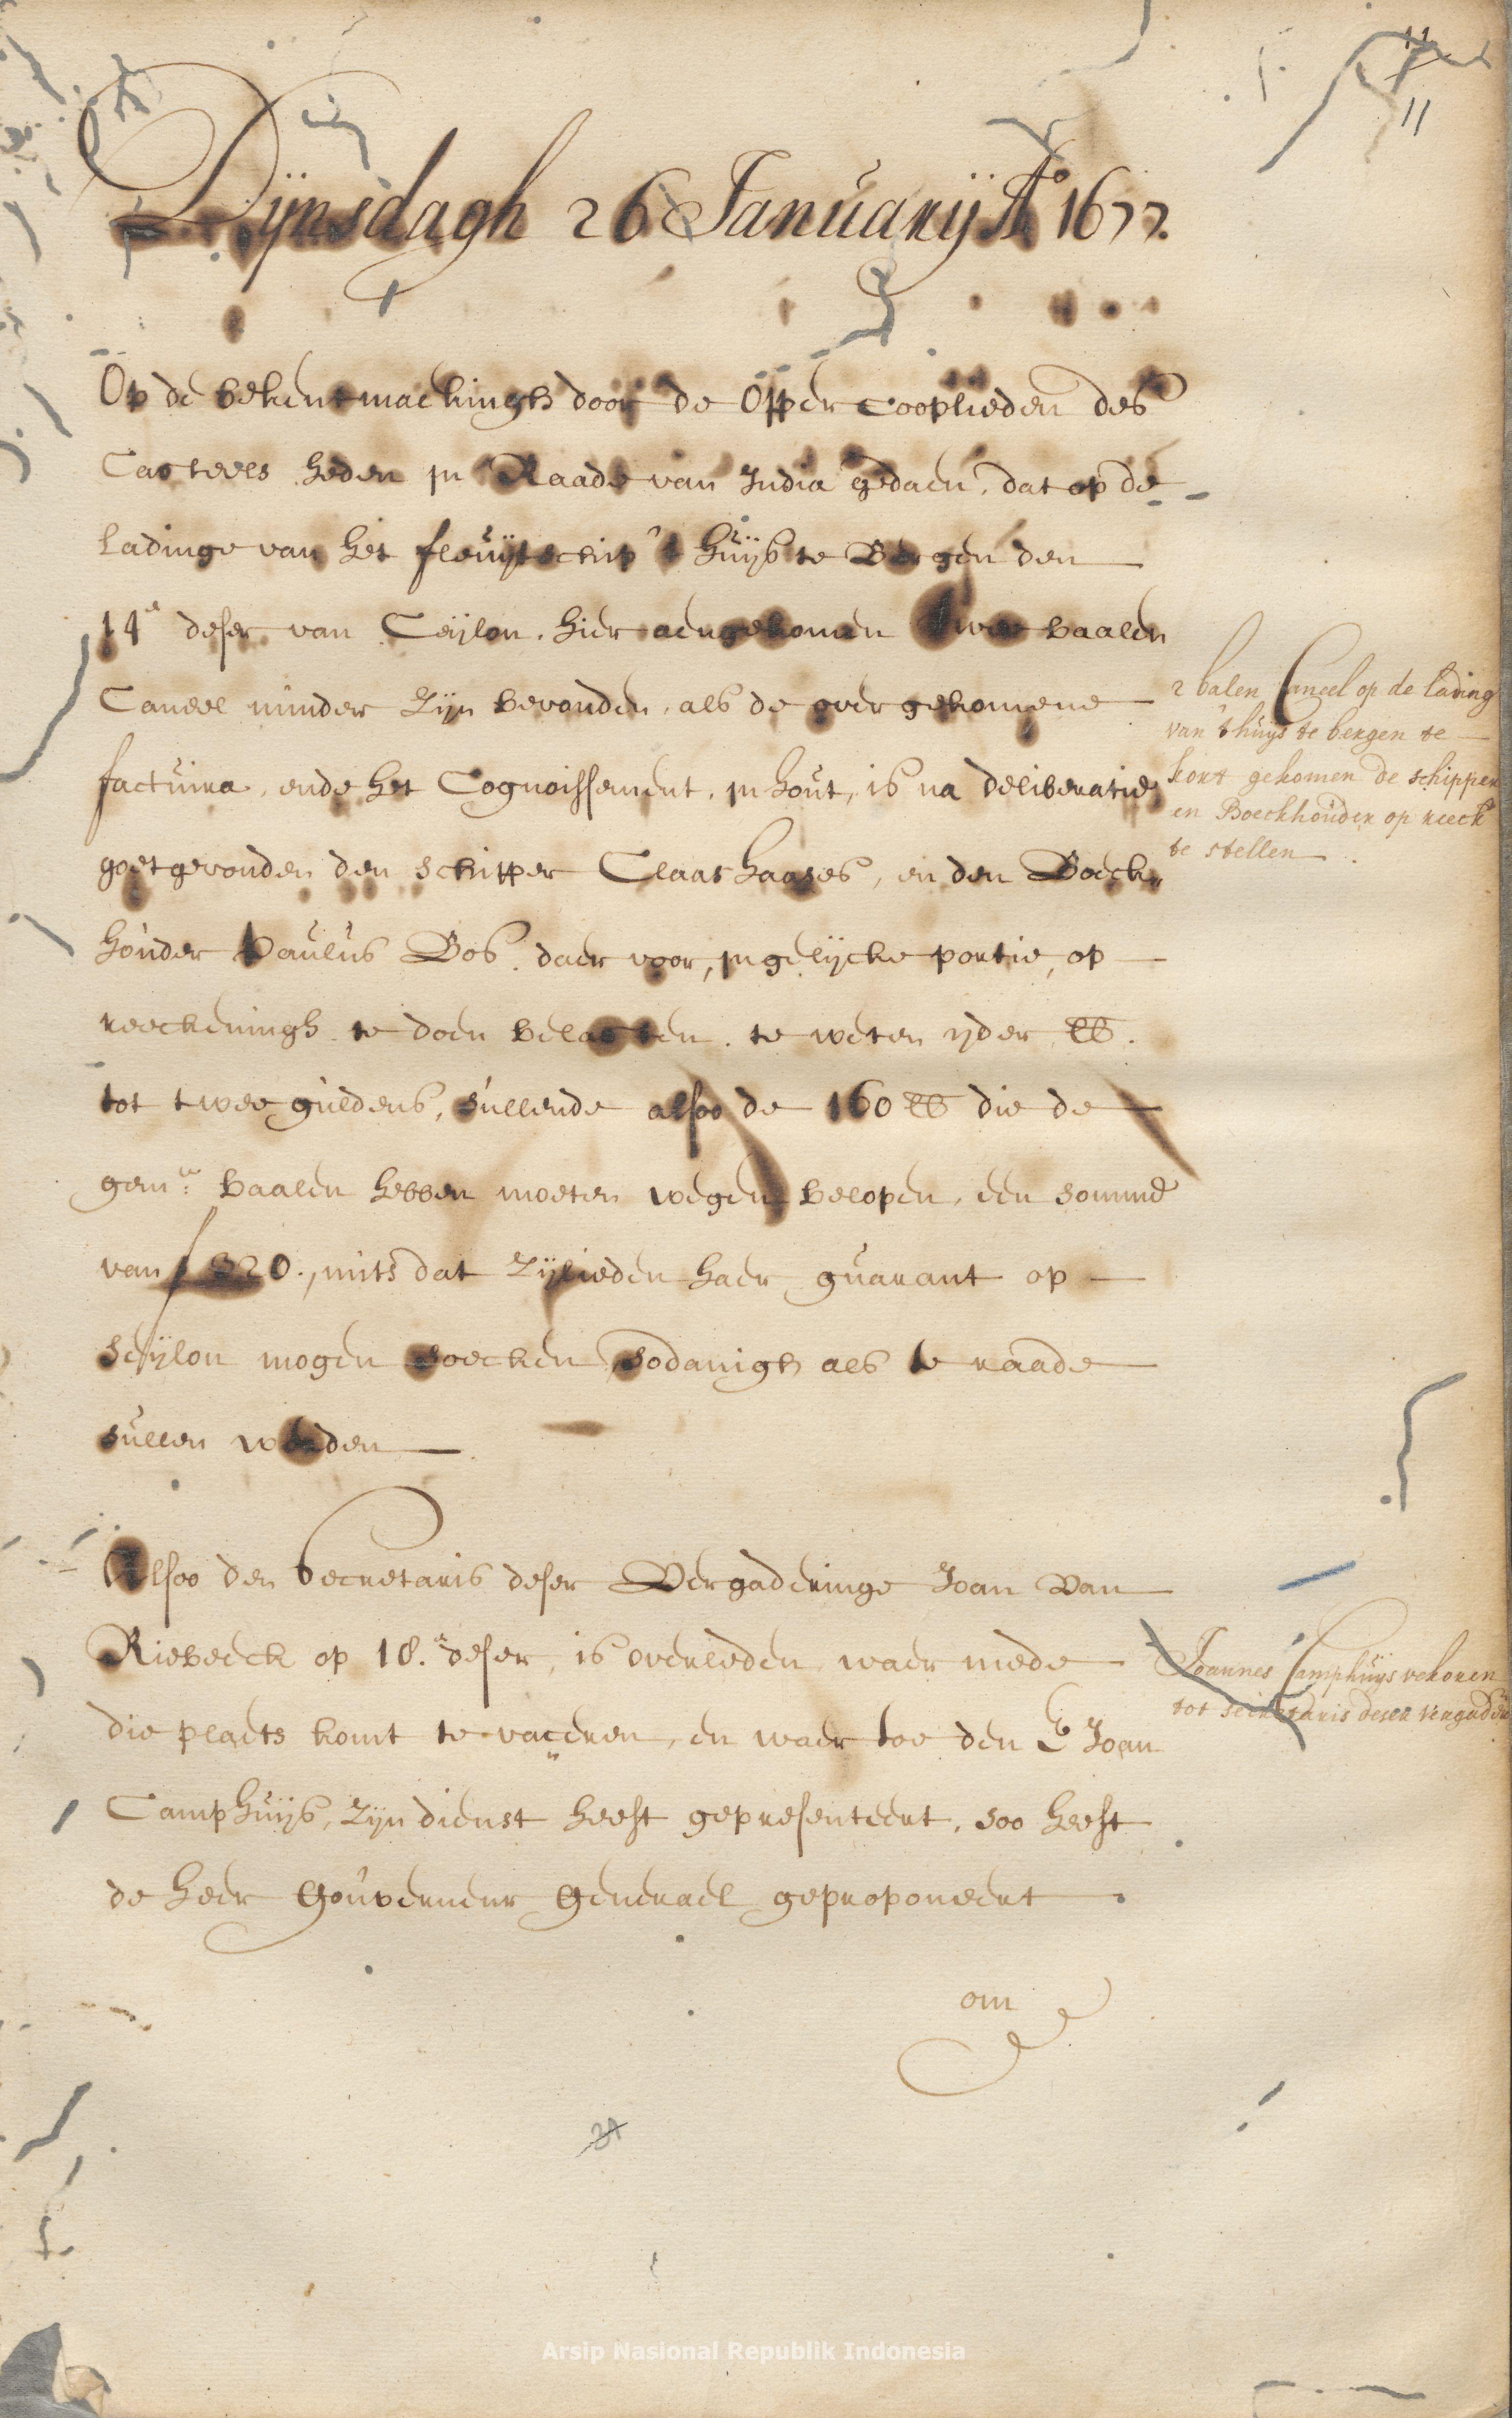 11
11
Dijnsdagh 26 Januarij Aº 1677.
Op de bekentmackingh door de Opper Cooplieden des
Casteels heden in Raade van India gedaen, dat op de
ladinge van het fleuijtschip 't Huijs te Bergen den
14e deser van Ceijlon, hier aengekomen twee baalen
Caneel minder zijn bevonden, als de overgekomene
factuira, ende het Cognoissement, inhout, is na deliberatie
goetgevonden den schipper Claas Haases, en den Boeck„
houder Paulus Bos, daer voor, in gelijcke portie, op
reeckeningh te doen belasten, te weten ijder lb.
tot twee guldens, sullende alsoo de 160 lb die de
gemte: baalen hebben moeten wegen belopen, een somme
van f 320., mits dat zijlieden haer guarant op
Seijlon mogen soecken sodanigh als te raade
sullen werden
2 balen Caneel op de lading
van 't huijs te bergen te
kort gekomen de schipper
en Boeckhouder op reeck
te stellen
Alsoo den Secretaris deser Vergaderinge Joan van
Riebeeck op 18.e deser, is overleden, waer mede
die plaets komt te vaceren, en waer toe den E Joan
Camphuijs, zijn dienst heeft gepresenteert, soo heeft
de Heer Gouverneur Generael geproponeert
Joannes Camphuijs vekoren
tot secretaris deser vergader
om
Arsip Nasional Republik Indonesia